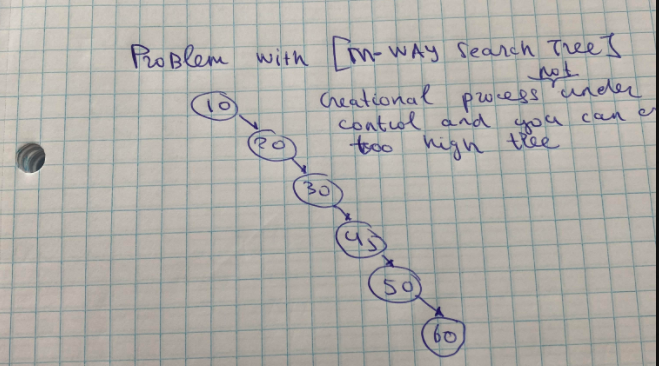 Problem with [m-way Search Tree]
not
Creational process under
control and you can c
too high tree
10
20
30
45
50
60